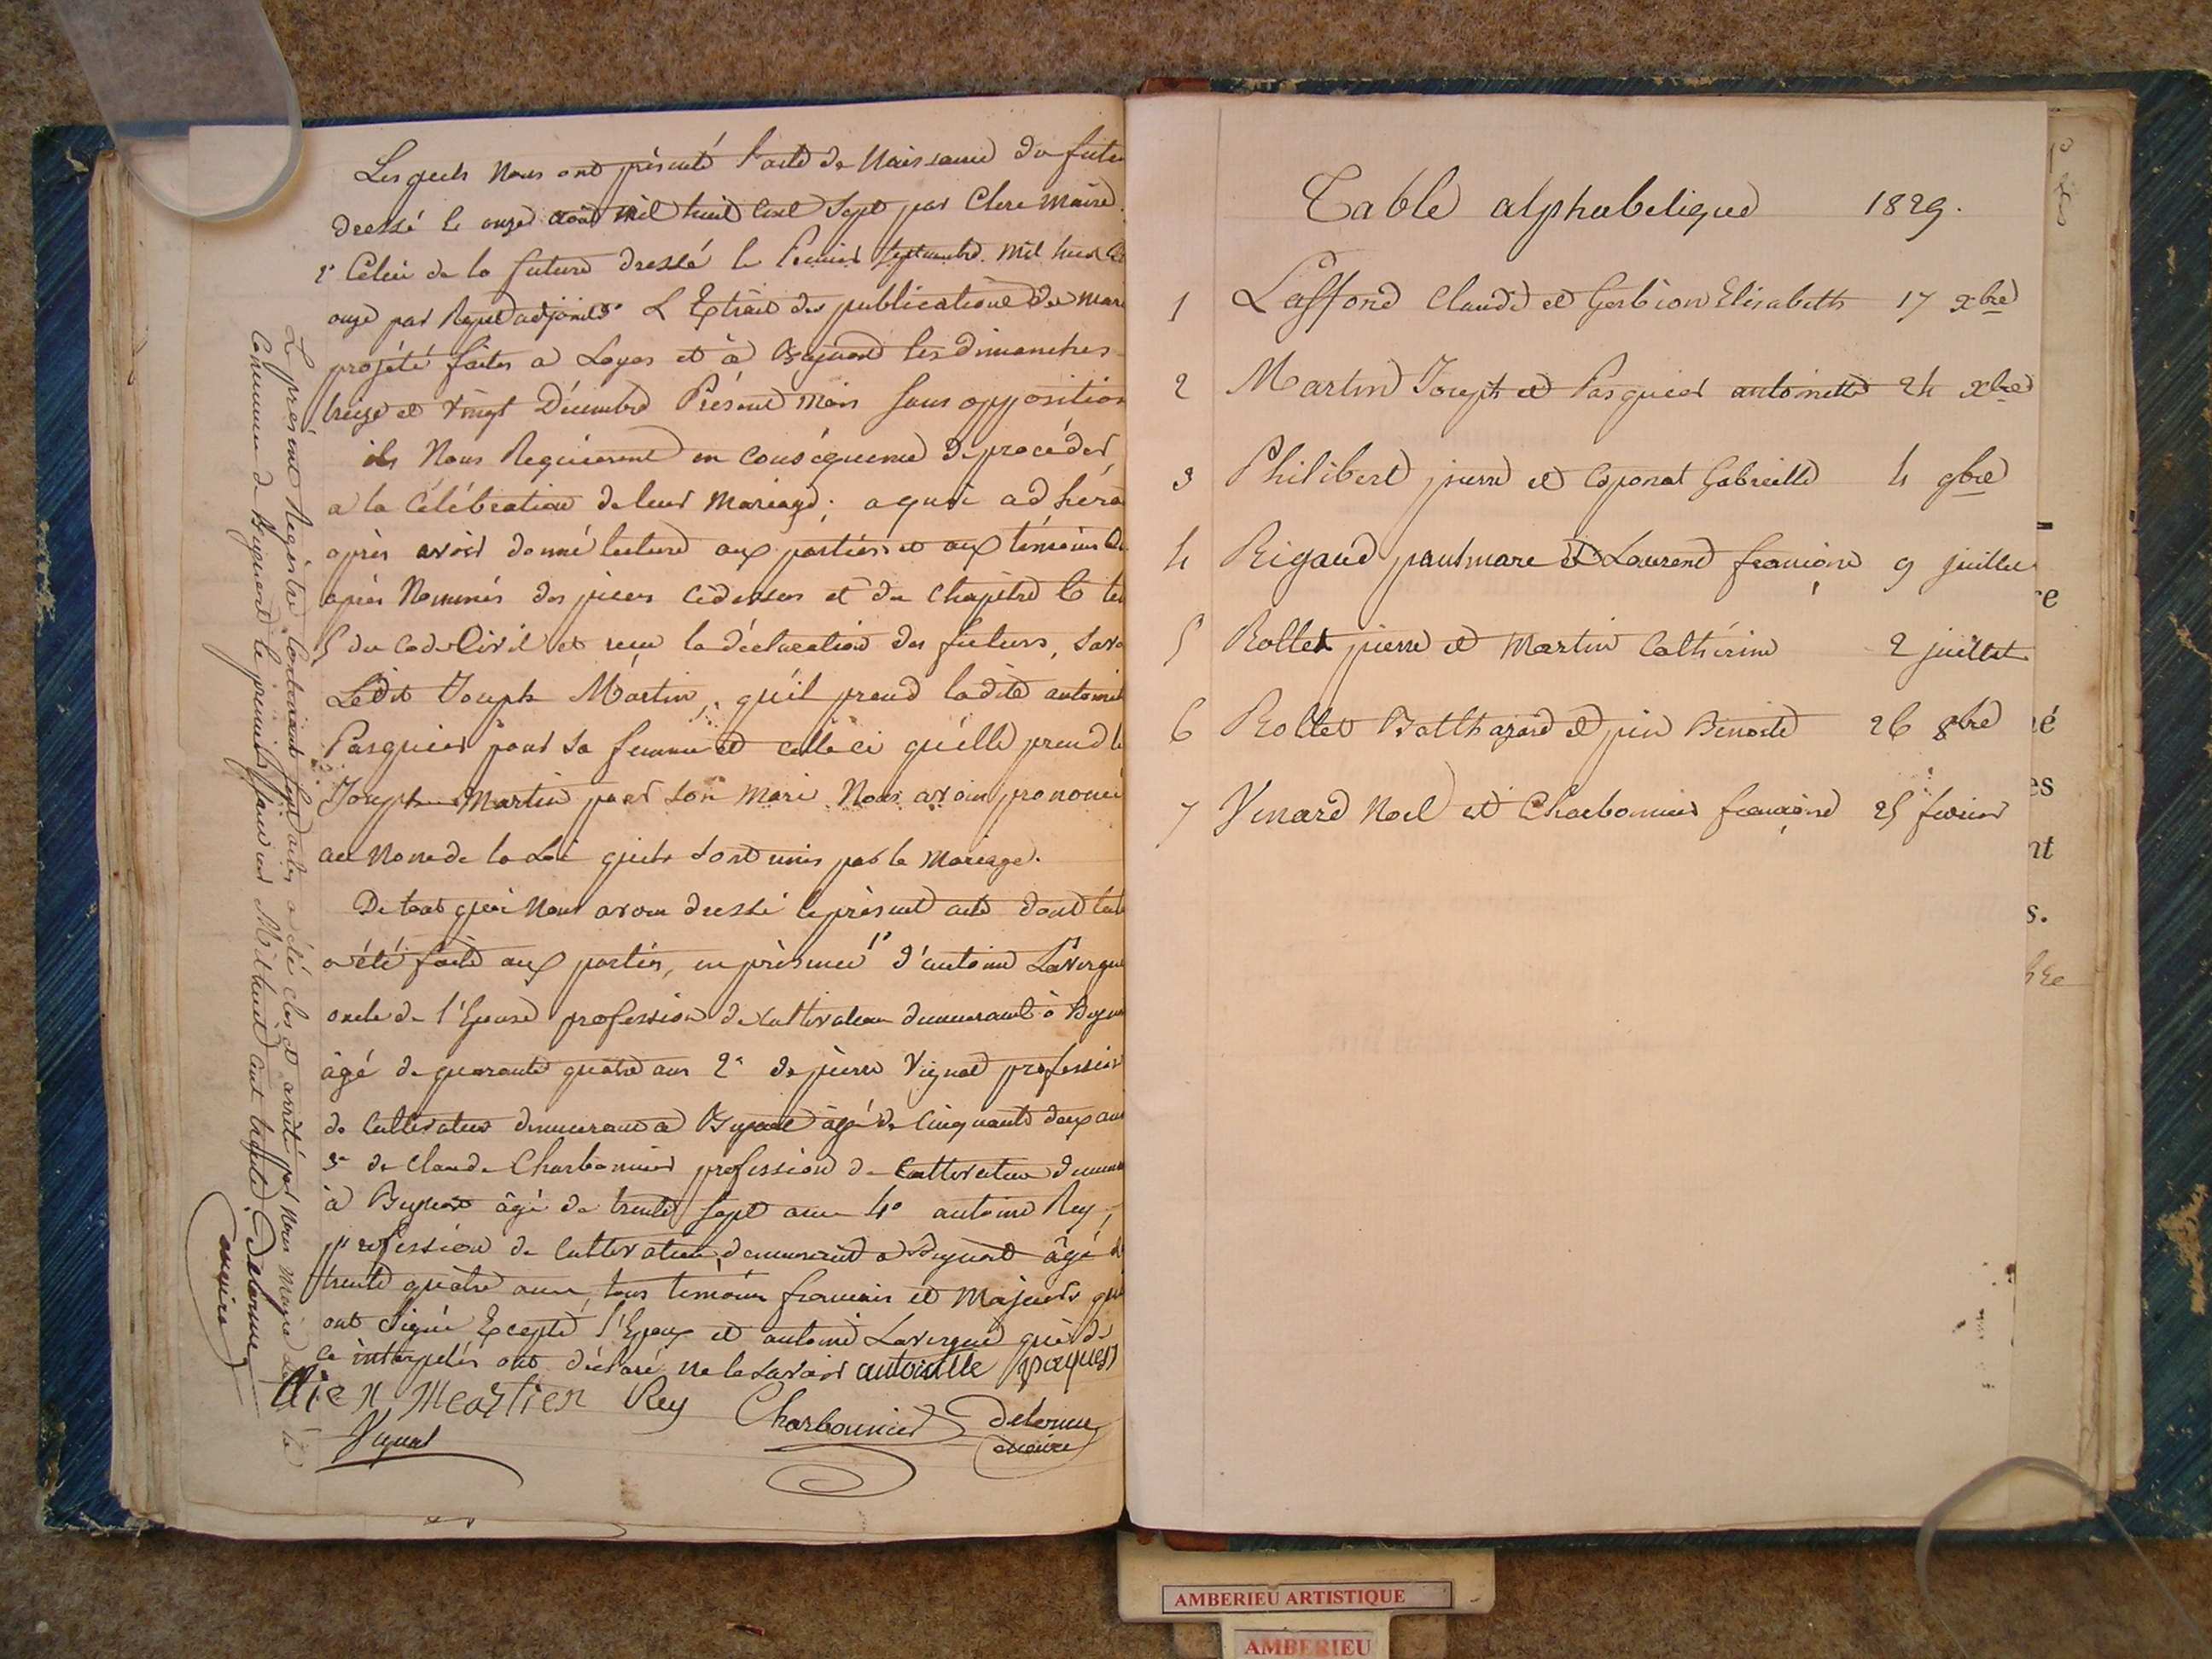 Lesquels Nous ont présenté l'acte de Naissance du futu
dressé le onze août mil huit cent sept par Clere Maire
2° Celui de la future dressé le Premier Septembre mil huit ce
onze par Reydadjoint 3° L'Extrait des publications du mari
projété faites a Loyes et à Buynand les dimanches
treize et vingt Décembre Présent Mois sans opposition
ils Nous Requièrent en conséquence de procéder
a la Célébration de leur Mariage; a quoi adhéra
après avoir donné lecture aux parties et aux témoins Ci
après Nommés des pieces cidessus et du Chapitre 6 tit
5 du Code Civil et reçu la déclaration des futurs, Savo
Ledit Joseph Martin, qu'il prend ladite antoinet
Pasquier pour sa femme et celle ci qu'elle prend le
Joseph Martin pour son mari Nous avons prononcé
au Nom de la Loi quils sont unis par le Mariage.
De tout quoi Nous avons dressé le présent acte dont lect
a été faite aux parties, en présence 1° d'antoine Lavergne
oncle de l'Epouse profession de cultivateur demeurant à Buyna
âgé de quarante quatre ans 2° de pierre Vignat profession
de Cultivateur demeurant a Buynand âgé de Cinquante deux ans
3° de Claude Charbonnier profession de Cultivateur demeur
à Buynand âgé de trente sept ans 4° antoine Rey,
profession de Cultivateur, demeurant a Buynand âgé de
trente quatre ans, tous témoins français et Majeurs qui
ont signé Excepté l'Epoux et antoine Lavergne qui de
ce interpelés ont déclaré ne le savoir antoinette paques
Martien Rey Charbonnier delorme
Vignat maire
Le présent Registre Contenant sept actes a été clos et arrêté par Nous Maire de la
Commune de Buynand le premier janvier Mil huit cent trente. delorme
maire
Table alphabetique 1829.
1 Laffond Claude et Gerbion Elisabeth 17 xbre
2 Martin Joseph et Pasquier antoinette 24 xbre
3 Philibert pierre et Caponat Gabrielle 4 9bre
4 Rigaud paulmarc et Laurend françoise 9 juillet
5 Rollet pierre et Martin Cathérine 2 juillet
6 Rollet Balthazard et pin Benoite 26 8bre
7 Venard Noel et Charbonnier françoise 25 fevrier
re
é
es
nt
s.
AMBERIEU ARTISTIQUE
AMBERIEU